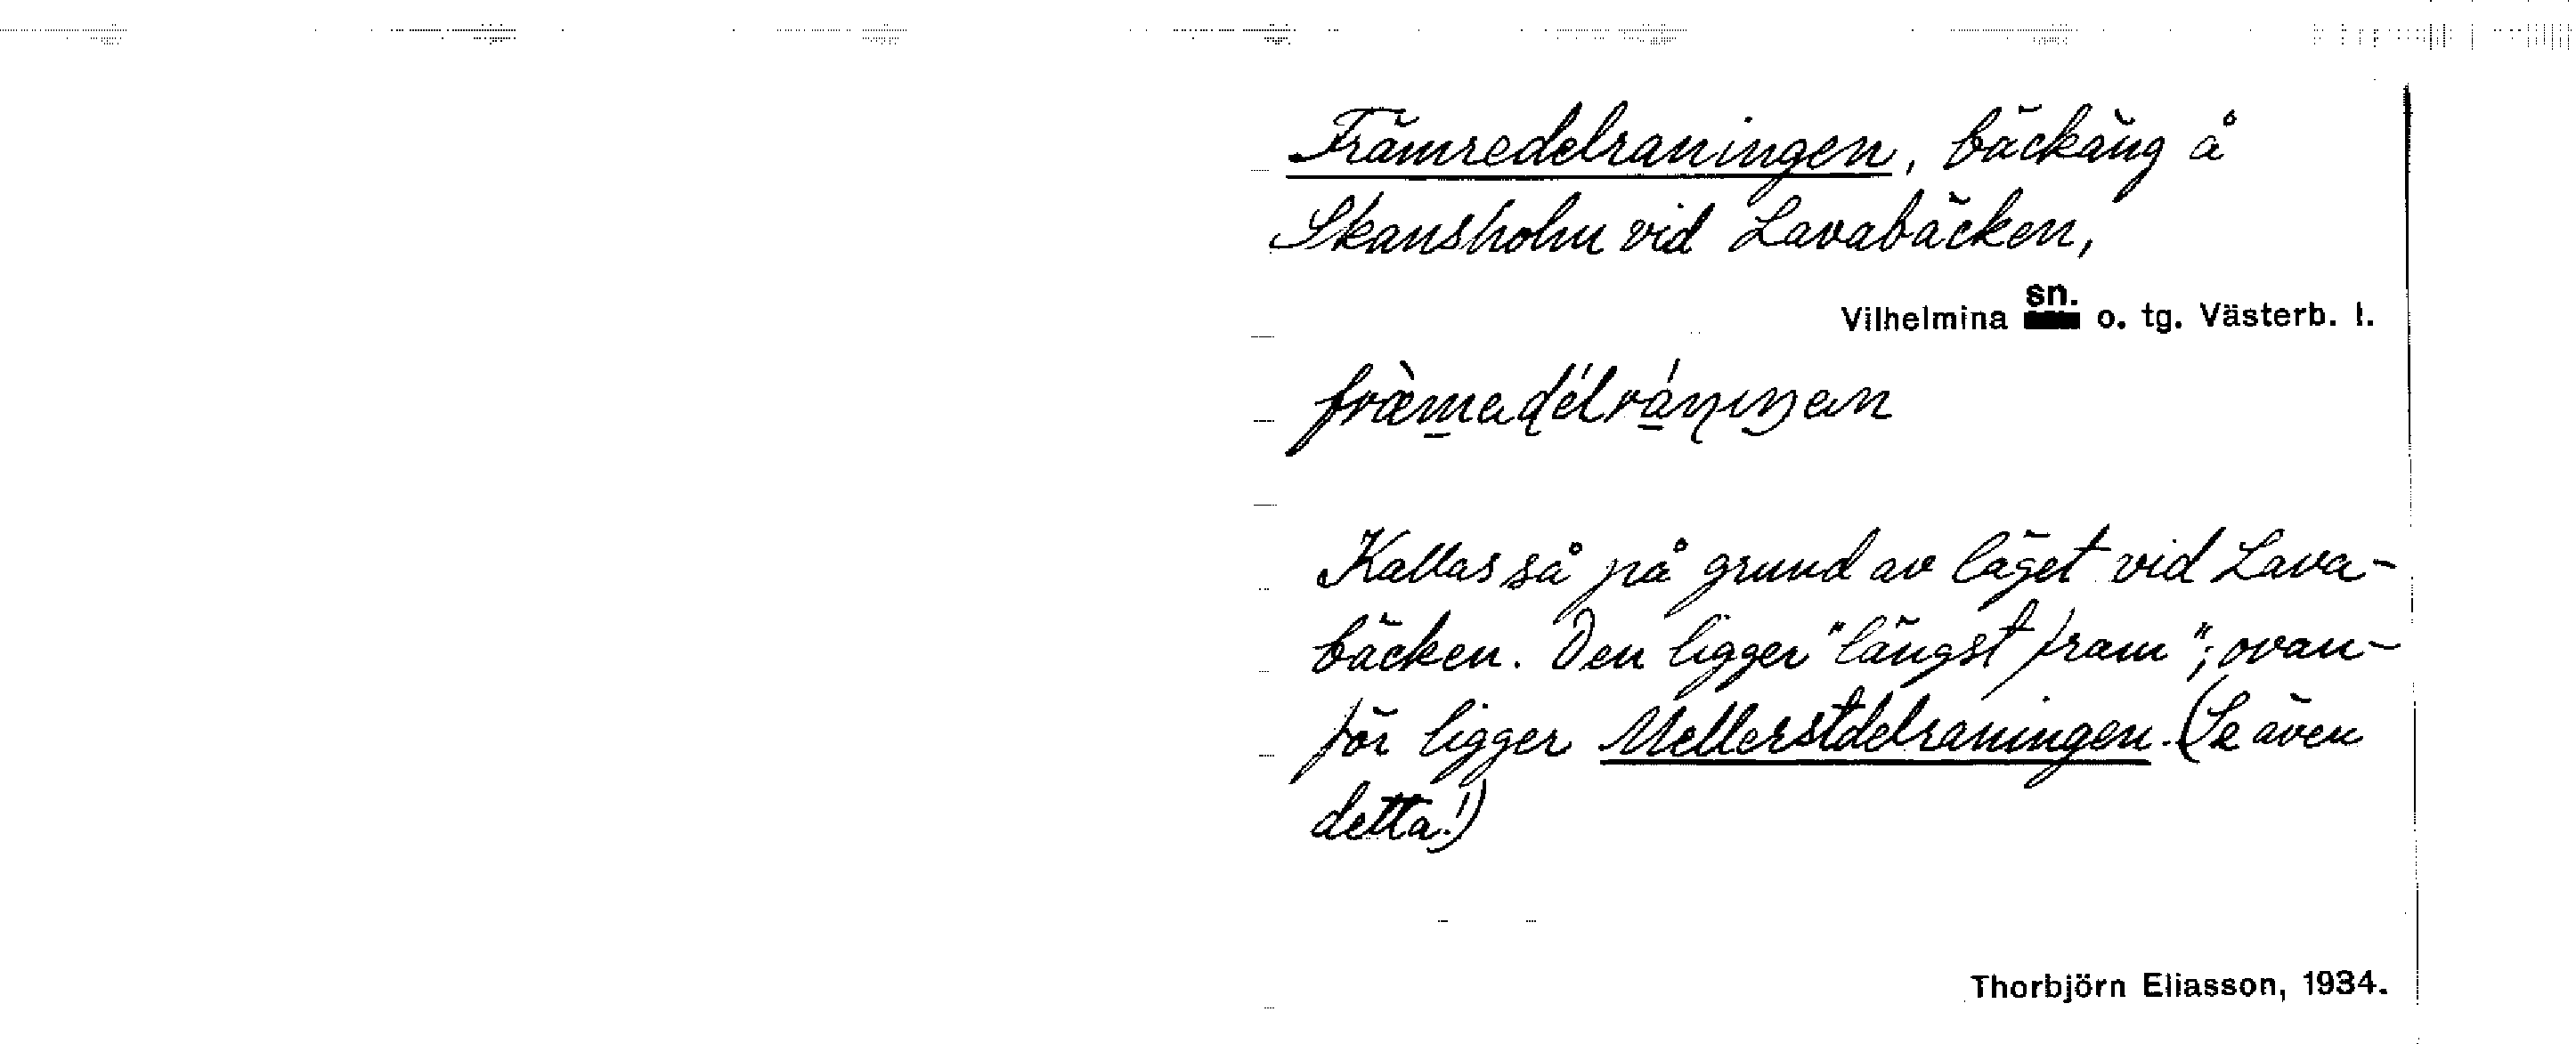 Främredelraningen, bäckäng å
Skansholm vid Lavabäcken,
Vilhelmina sn. o. tg. Västerb. l.
Kallas så på grund av läget vid Lava-
bäcken. Den ligger "längst fram"; ovan-
för ligger Mellerstdelraningen. (Se även
detta!)
Thorbjörn Eliasson, 1934.